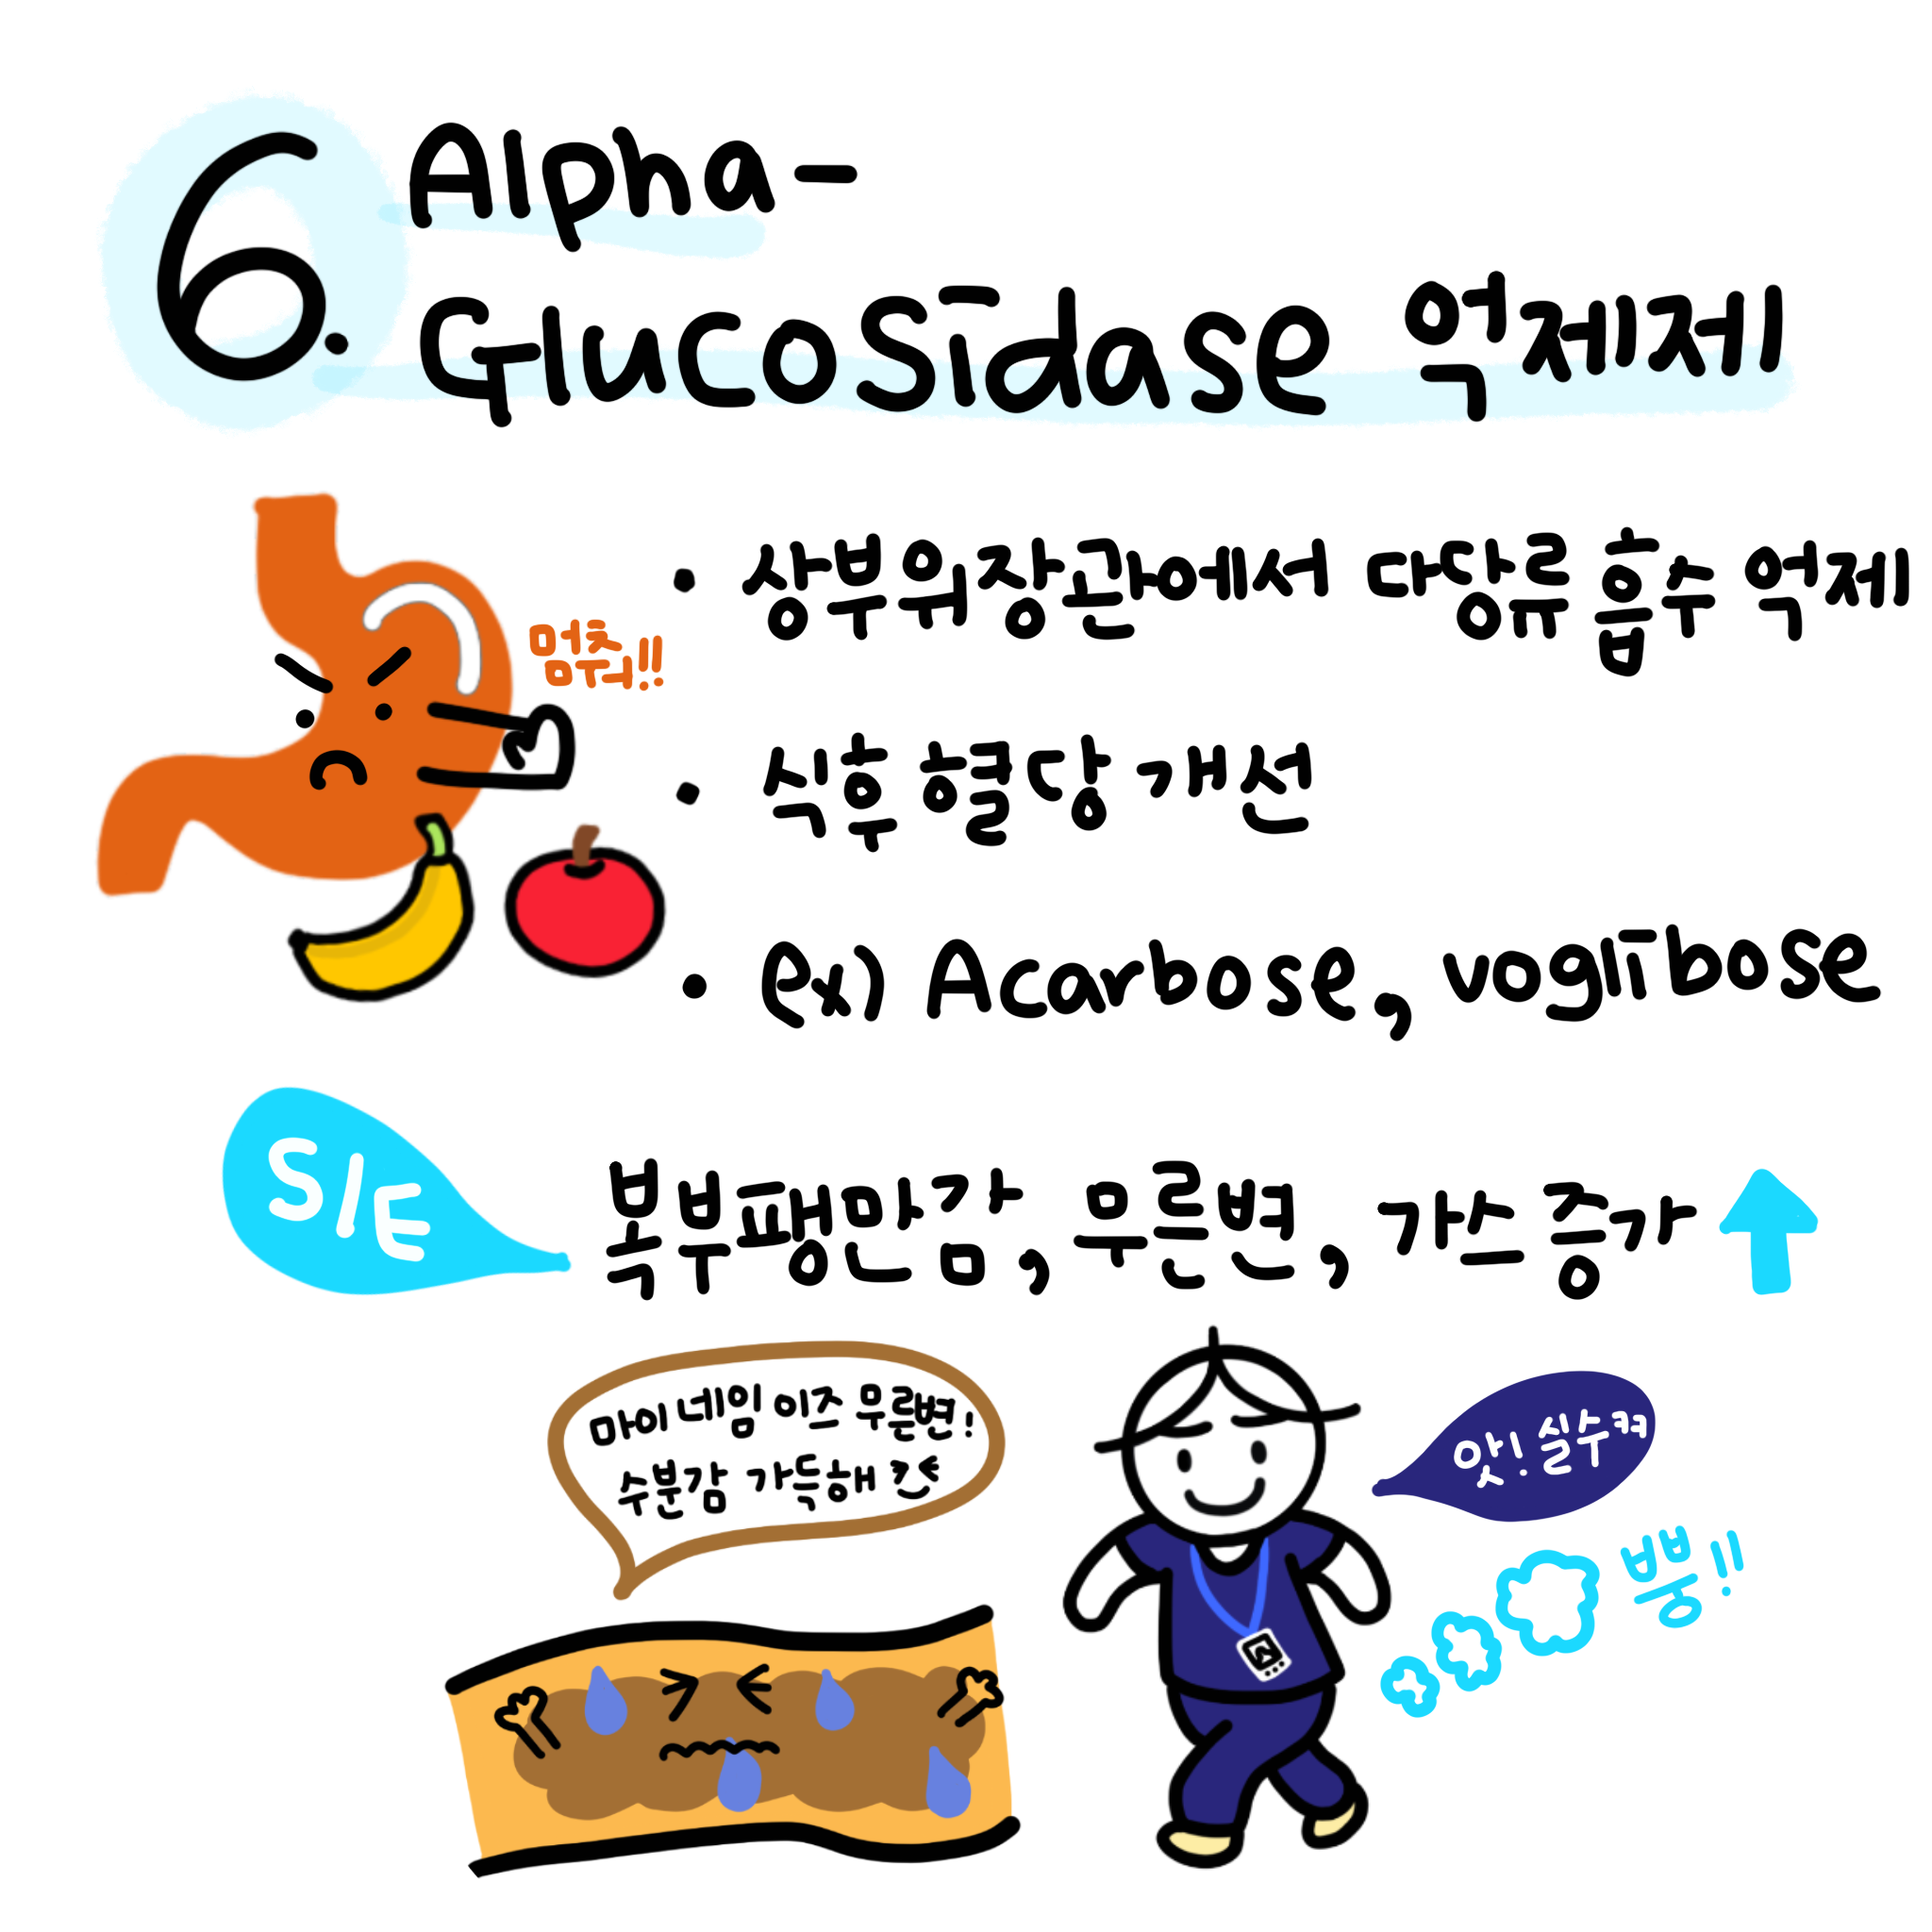 6. Alpha-
Glucosidase 억제제
· 상부위장관에서 다당류 흡수 억제
멈춰!!
· 식후 혈당 개선
· (ex) Acarbose, voglibose
S/E
복부팽만감, 무른변, 가스 증가
마이 네임 이즈 무른변!
수분감 가득해
앗!. 실수 ㅋㅋ
뿡!!